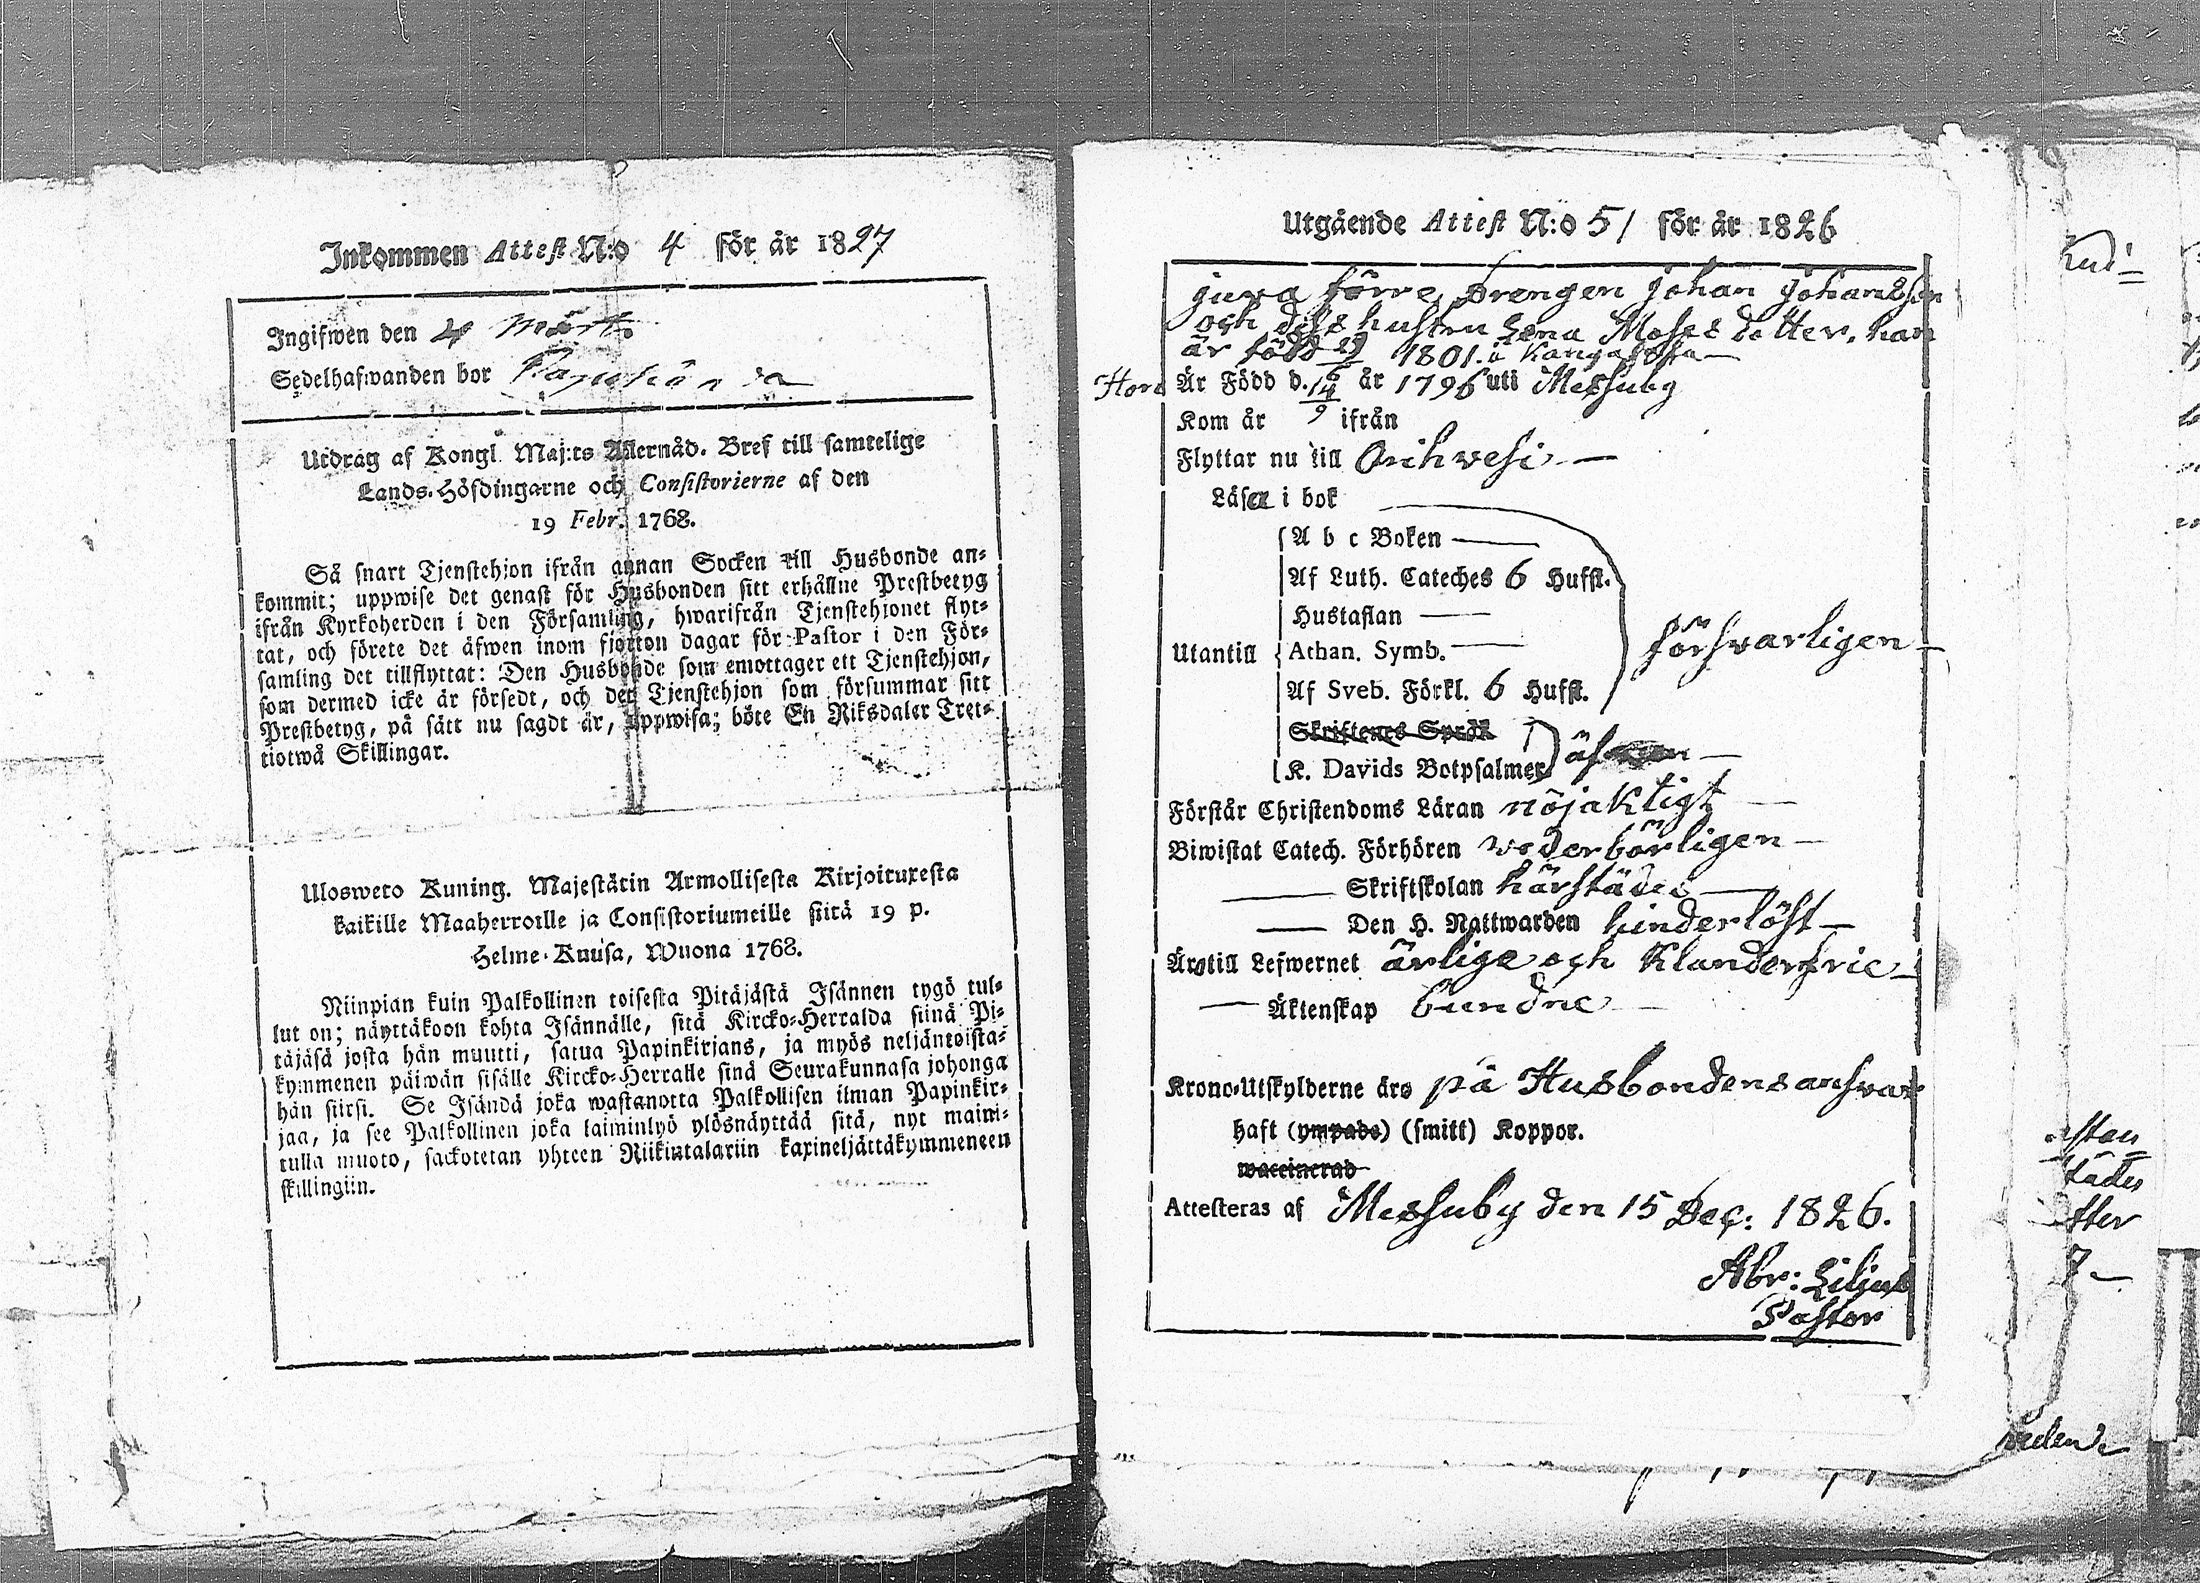 Inkommen Attest N:o 4 för år 1827
Ingifwen den 4 Mart.
Sedelhafwanden bor
Utdrag af Kongl. Maj:ts Allernåd. Bref till samtelige
Lands-Höfdingarne och Consistorierne af den
19 Febr. 1768.
Så snart Tjenstehjon ifrån annan Socken till Husbonde an-
kommit; uppwise det genast för Husbonden sitt erhållne Prestbetyg
ifrån Kyrkoherden i den Församling, hwarifrån Tjenstehjonet flyt-
tat, och förete det äfwen inom fjorton dagar för Pastor i den För-
samling det tillflyttat: Den Husbonde som emottager ett Tjenstehjon,
som dermed icke är försedt, och det Tjenstehjon som försummar sitt
Prestbetyg, på sätt nu sagdt är, uppwisa; böte En Riksdaler Tret-
tiotwå Skillingar.
Ulosweto Kuning. Majestätin Armollisesta Kirjoituxesta
kaikille Maaherroille ja Consistoriumeille siitä 19 p.
Helme-Kuusa, Wuona 1768.
Niinpian kuin Palkollinen toisesta Pitäjästä Isännen tygö tul-
lut on; näyttäkoon kohta Isännälle, sitä Kircko-Herralda siinä Pi-
täjäsä josta hän muutti, satua Papinkirjans, ja myös neljäntoista-
kymmenen päiwän sisälle Kircko-Herralle sinä Seurakunnasa johonga
hän siirsi. Se Isändä joka wastanotta Palkollisen ilman Papinkir-
jaa, ja see Palkollinen joka laiminlyö ylösnäyttää sitä, nyt maini-
tulla muoto, sackotetan yhteen Riikintalariin kaxineljättäkymmeneen
skillingiin.
Utgående Attest N:o 51 för år 1826
förre Drengen Johan Johansson
och dess hustru Lena Moses dotter, han
är född 1801. i Kangasala
Hon Är Född d. år 1796 uti Messuby
Kom år ifrån
Flyttar nu till Orihvesi
Läsa i bok
A b c Boken
Af Luth. Cateches 6 Hufst.
Hustaflan
Utantill Athan. Symb. försvarligen
Af Sveb. Förkl. 6 Hufst.
Skriftenes Språk
K. Davids Botpsalmer
Förstår Christendoms Läran nöjaktigt
Biwistat Catech. Förhören vederbörligen
Skriftskolan härstädes
Den H. Nattwarden hinderlöst
Äro till Lefwernet ärlige och Klanderfrie
Äktenskap bundne
Krono-Utskylderne äro på Husbondens ansvar
haft (ympade) (smitt) Koppor.
waccinerad
Attesteras af Messuby den 15 Dec: 1826.
Abr: Lilius
Pastor